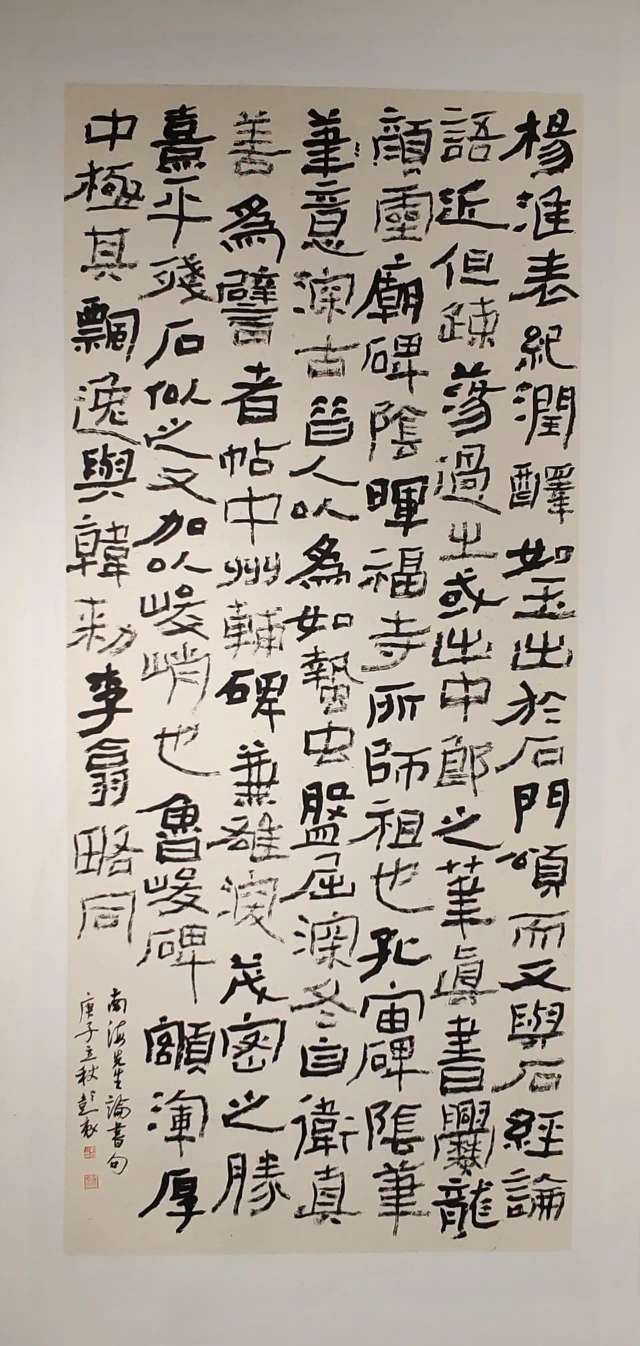 楊淮表紀潤醳如玉出於石門頌而又與石經論
語近但疎蕩過之或出中郎之筆眞書爨龍
顏靈廟碑陰暉福寺所師祖也孔宙碑陰筆
筆意深古昔人以爲如蟄虫盤屈深冬自衛真
善爲譬者帖中州輔碑兼雄深茂密之勝
熹平殘石似之又加以峻峭也魯峻碑額渾厚
中極其飄逸與韓勅李翕略同
南海先生論書句
庚子立秋彭